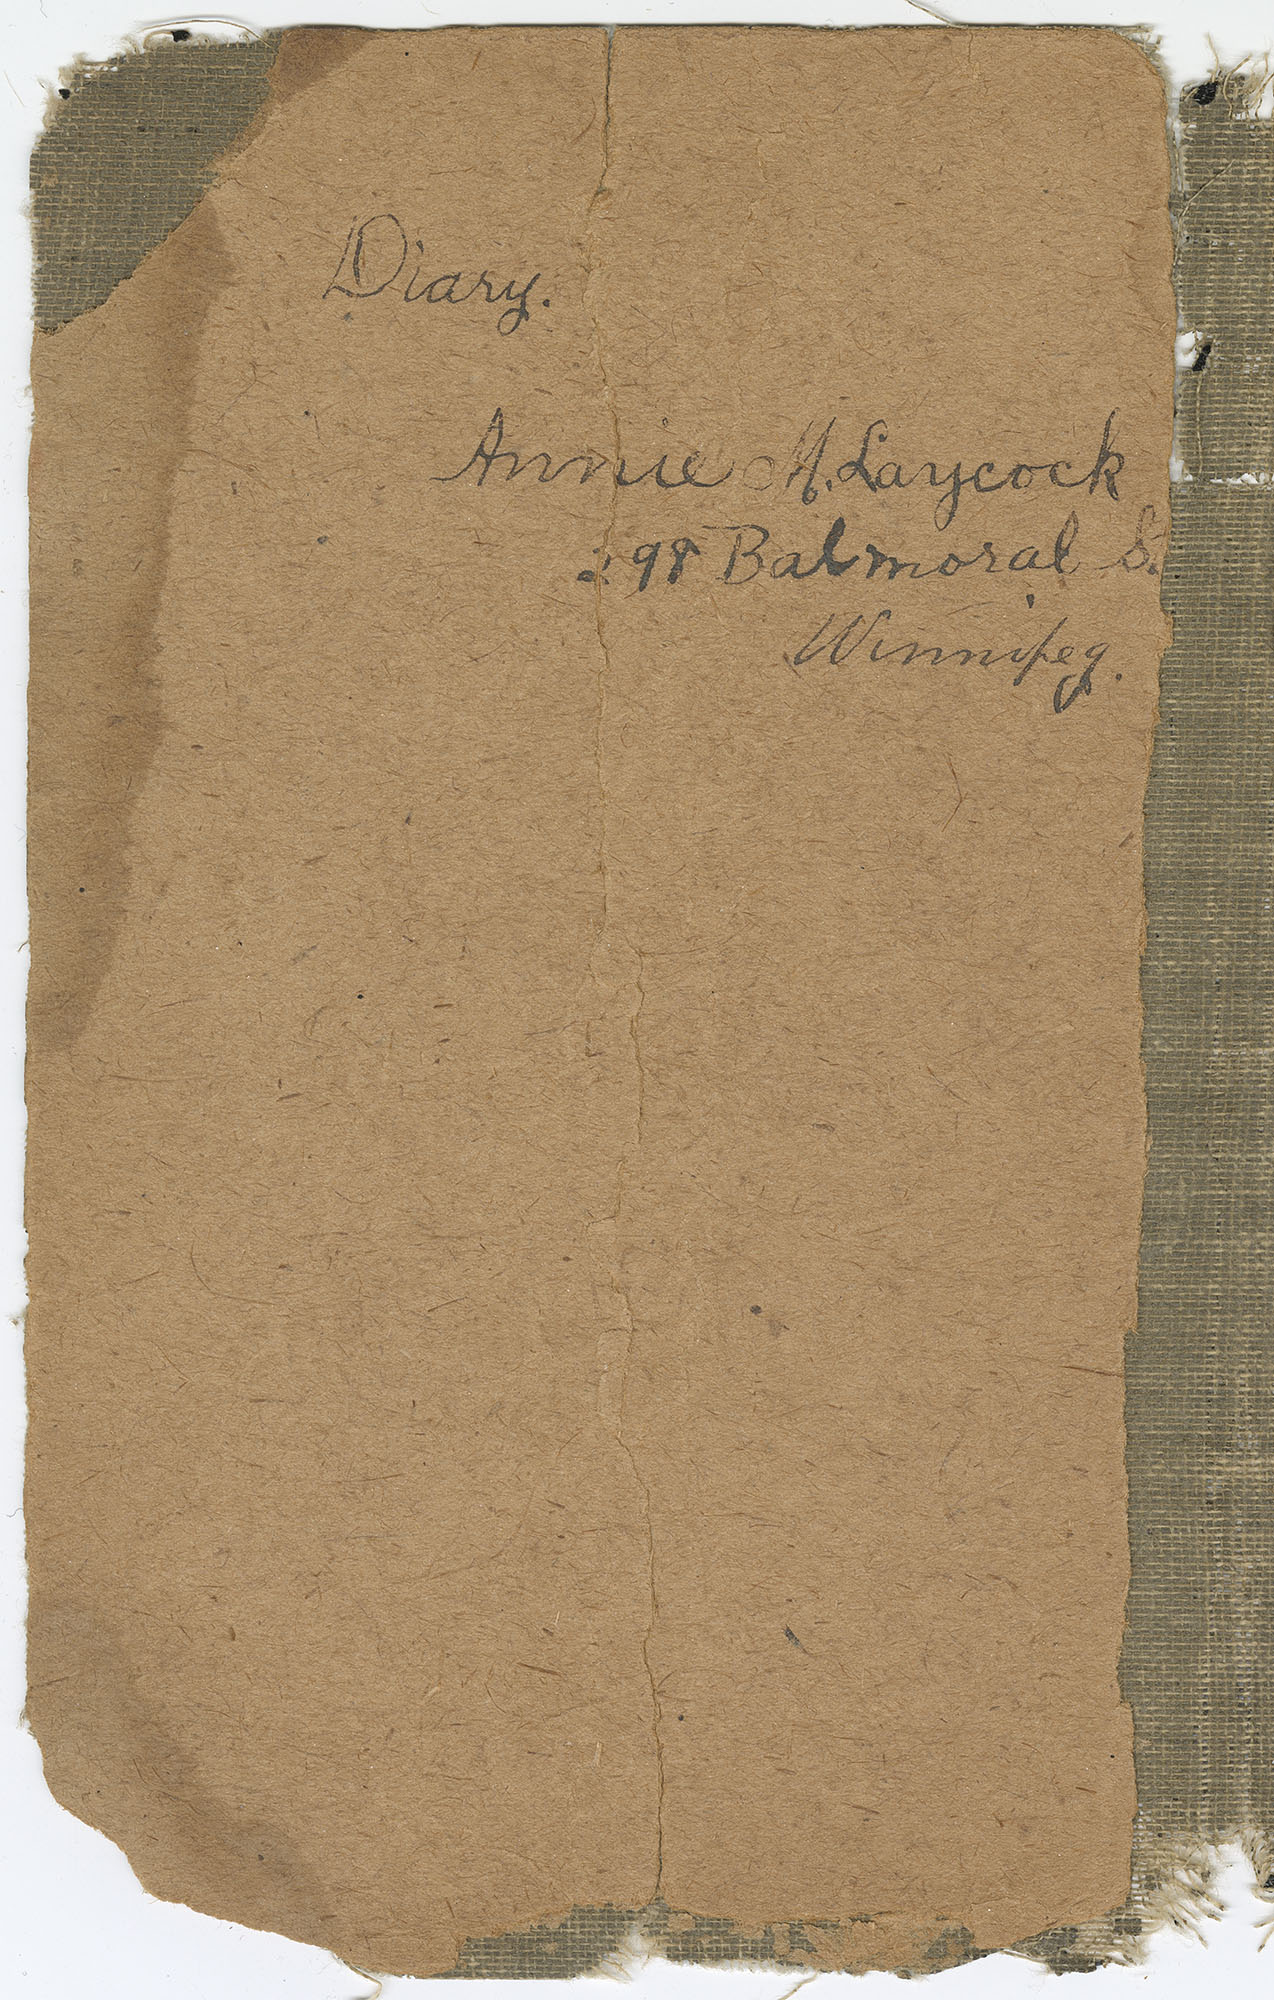 Diary.
Annie M. Laycock
298 Balmoral St.
Winnipeg.